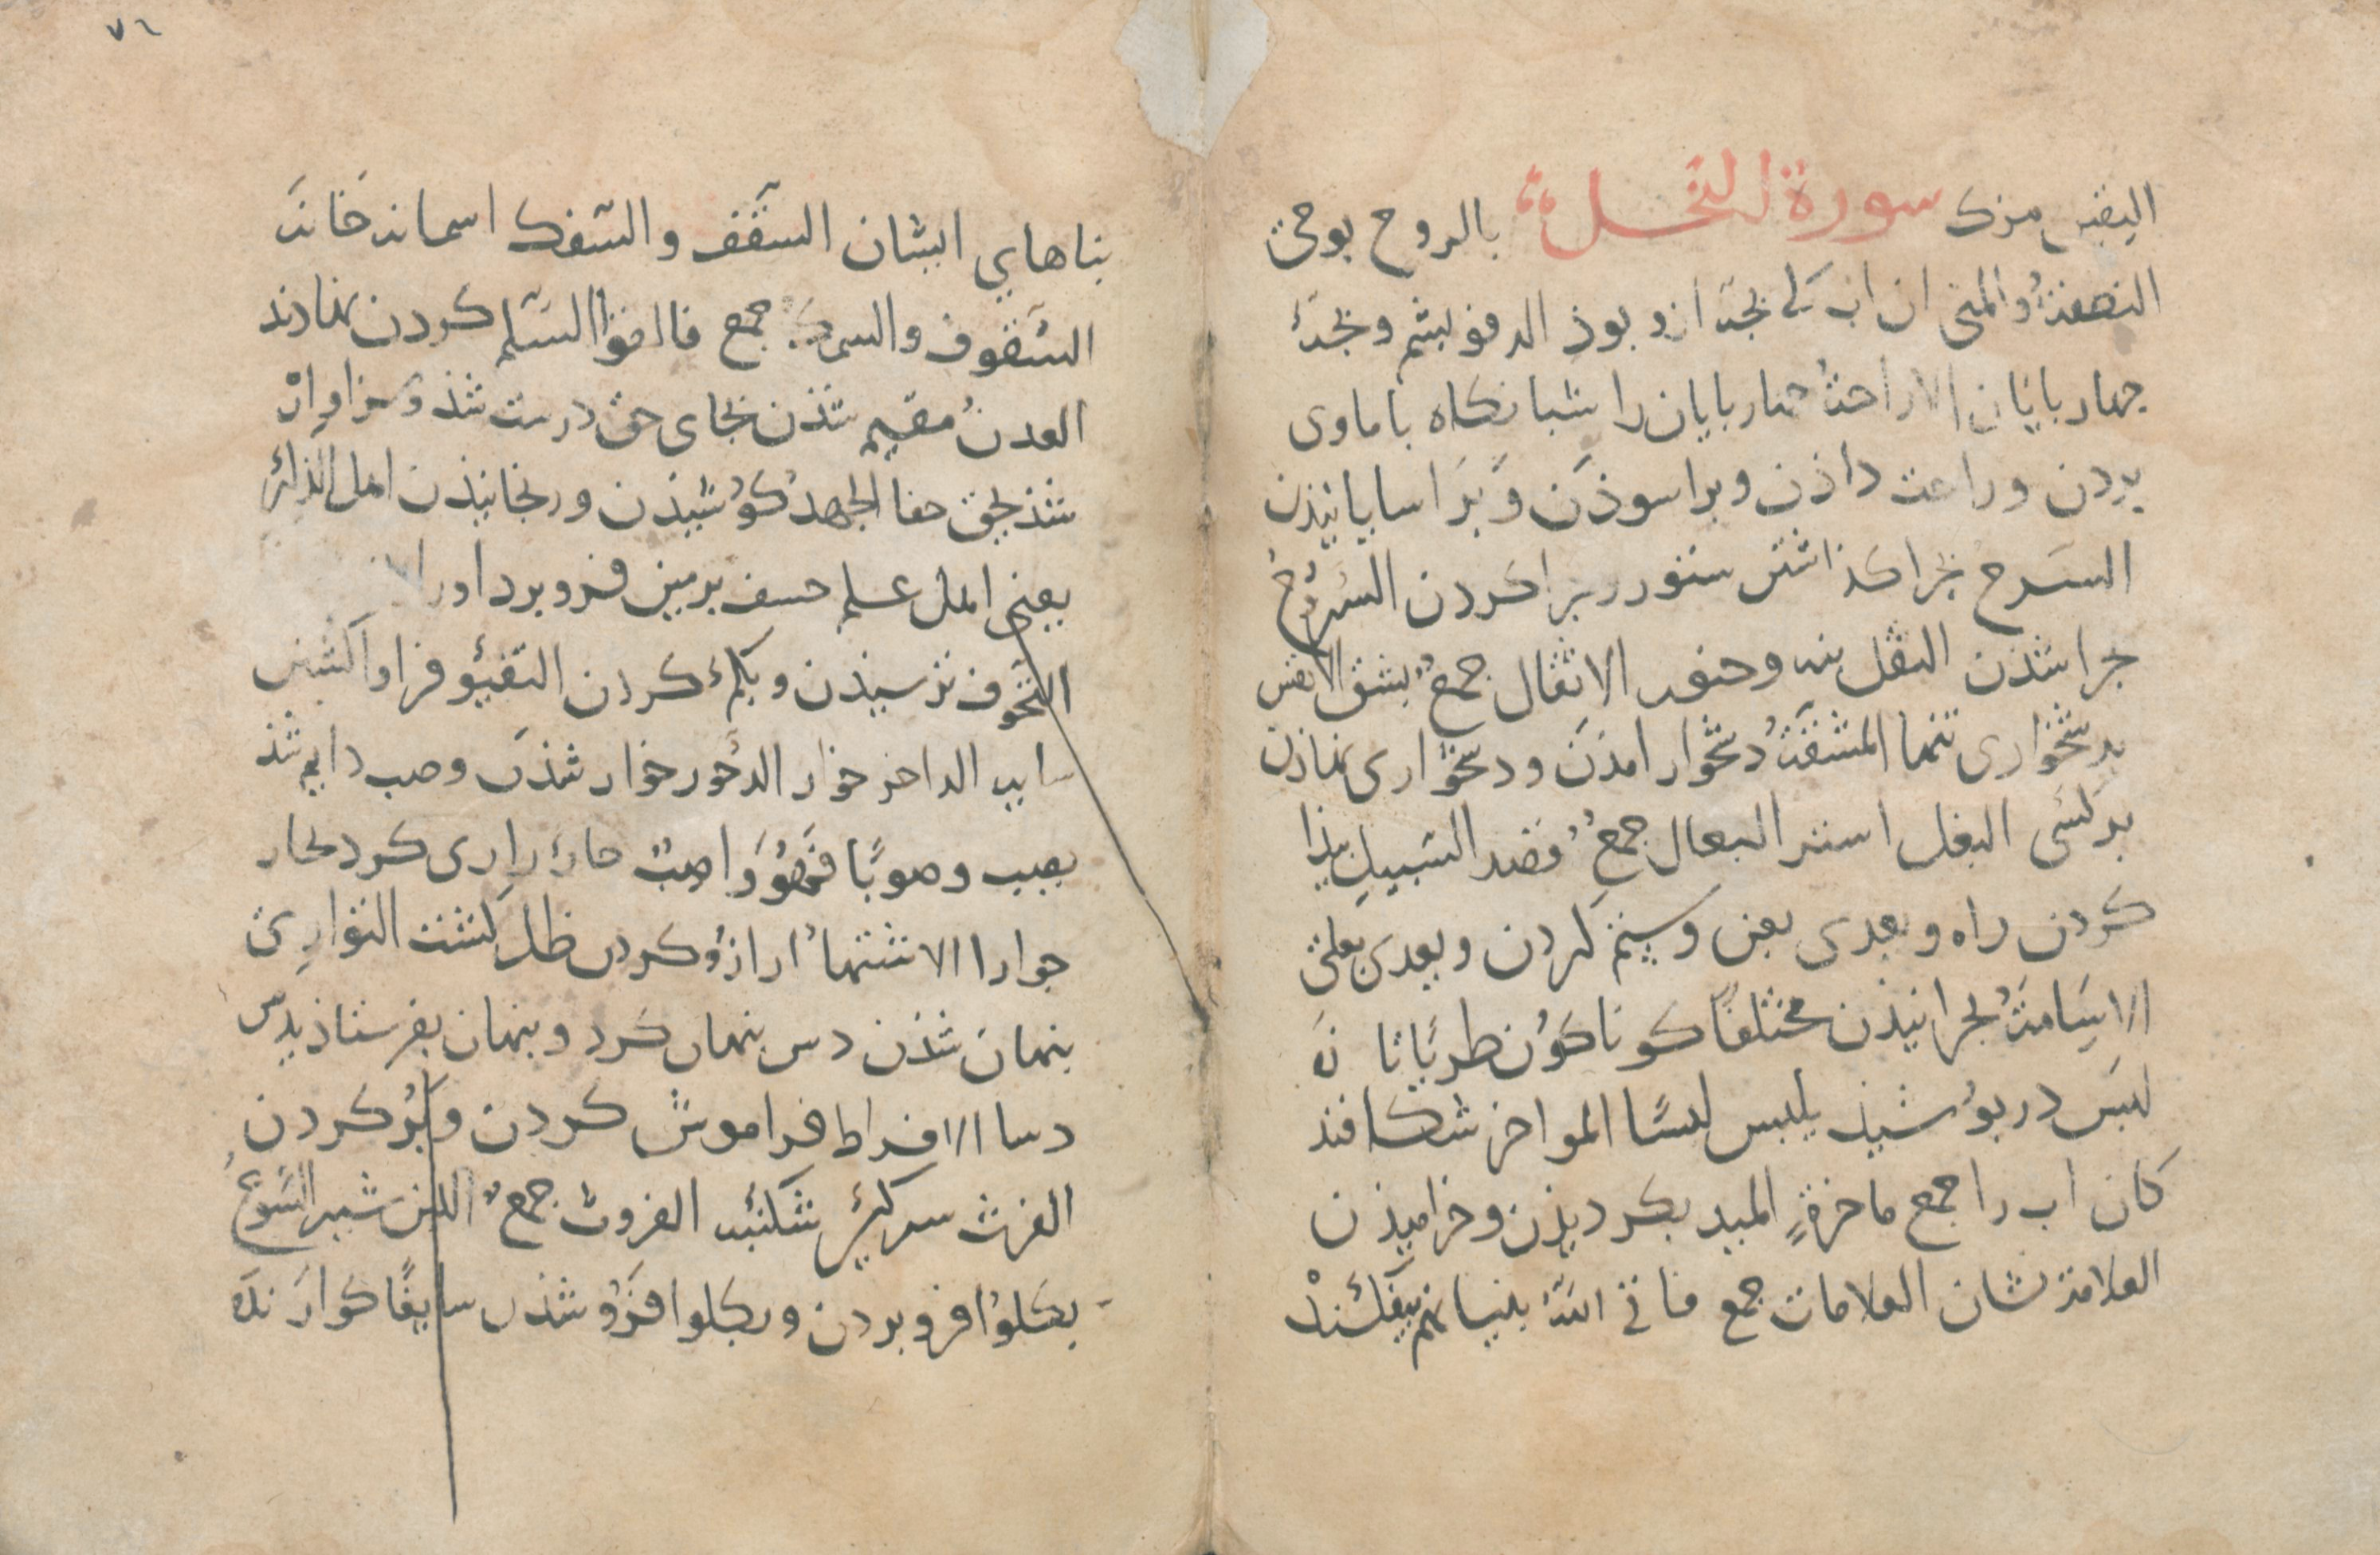 اليقين مرك سورة النحل بالروح بوحى
النطفة والمنى ان اب كى بجه ازو بوذ الدفو بشم وبجۀ
جهاربايان الاراحة جهاربايان را شبانكاه با ماوى
بردن وراحت داذن وبراسوذن وبراسايانيذن
السرح بجرا كذاشتن ستور وبجرا كردن السروح
جرا شذن الثقل بنه وحنور الاثقال جمع بشق الانفس
بدشخوارى تنها المشقة دشخوار امذن ودشخوارى نماذن
بر كسى البغل استر البغال جمع قصد السبيل بيذا
كردن راه وبعدى بعن وستم كردن وبعدى بعلى
الاسامة بجرانيذن مختلفا كوناكون طريا تازه
لبس دربوشيذ يلبس لبسا المواخر شكافند
كان اب را جمع ماخرة الميد بكرديذن وخراميذن
العلامة نشان العلامات جمع فاتى الله بنيانهم بيفكند
٧٦
بناهاي ايشان السقف والسمك اسمان خانه
السقوف والسمك جمع فالقوا السلم كردن نهادند
العدن مقيم شذن بجاى حق درست شذ وسزاوار
شذ يحق حقا الجهد كوشيذن ورنجانيذن اهل الذكر
يعنى اهل علم خسف بزمين فرو برد اورا
التخوف ترسيذن وبكم كردن التفيؤ فراوا كشتن
سايه الداخر خوار الدخور خوار شذن وصب دايم شذ
يصب وصوبا فهو واصب جار زارى كرد يجار
جوارا الاشتهاء ارزو كردن ظل كشت التوارى
بنهان شذن دس بنهان كرد وبنهان بفرستاذ يدس
دسا الافراط فراموش كردن وبر كردن
الفرث سركين شكنبه الفروث جمع اللبن شير السوغ
بكلو افرو بردن وبكلوا فرو شذن سايغا كوارنده